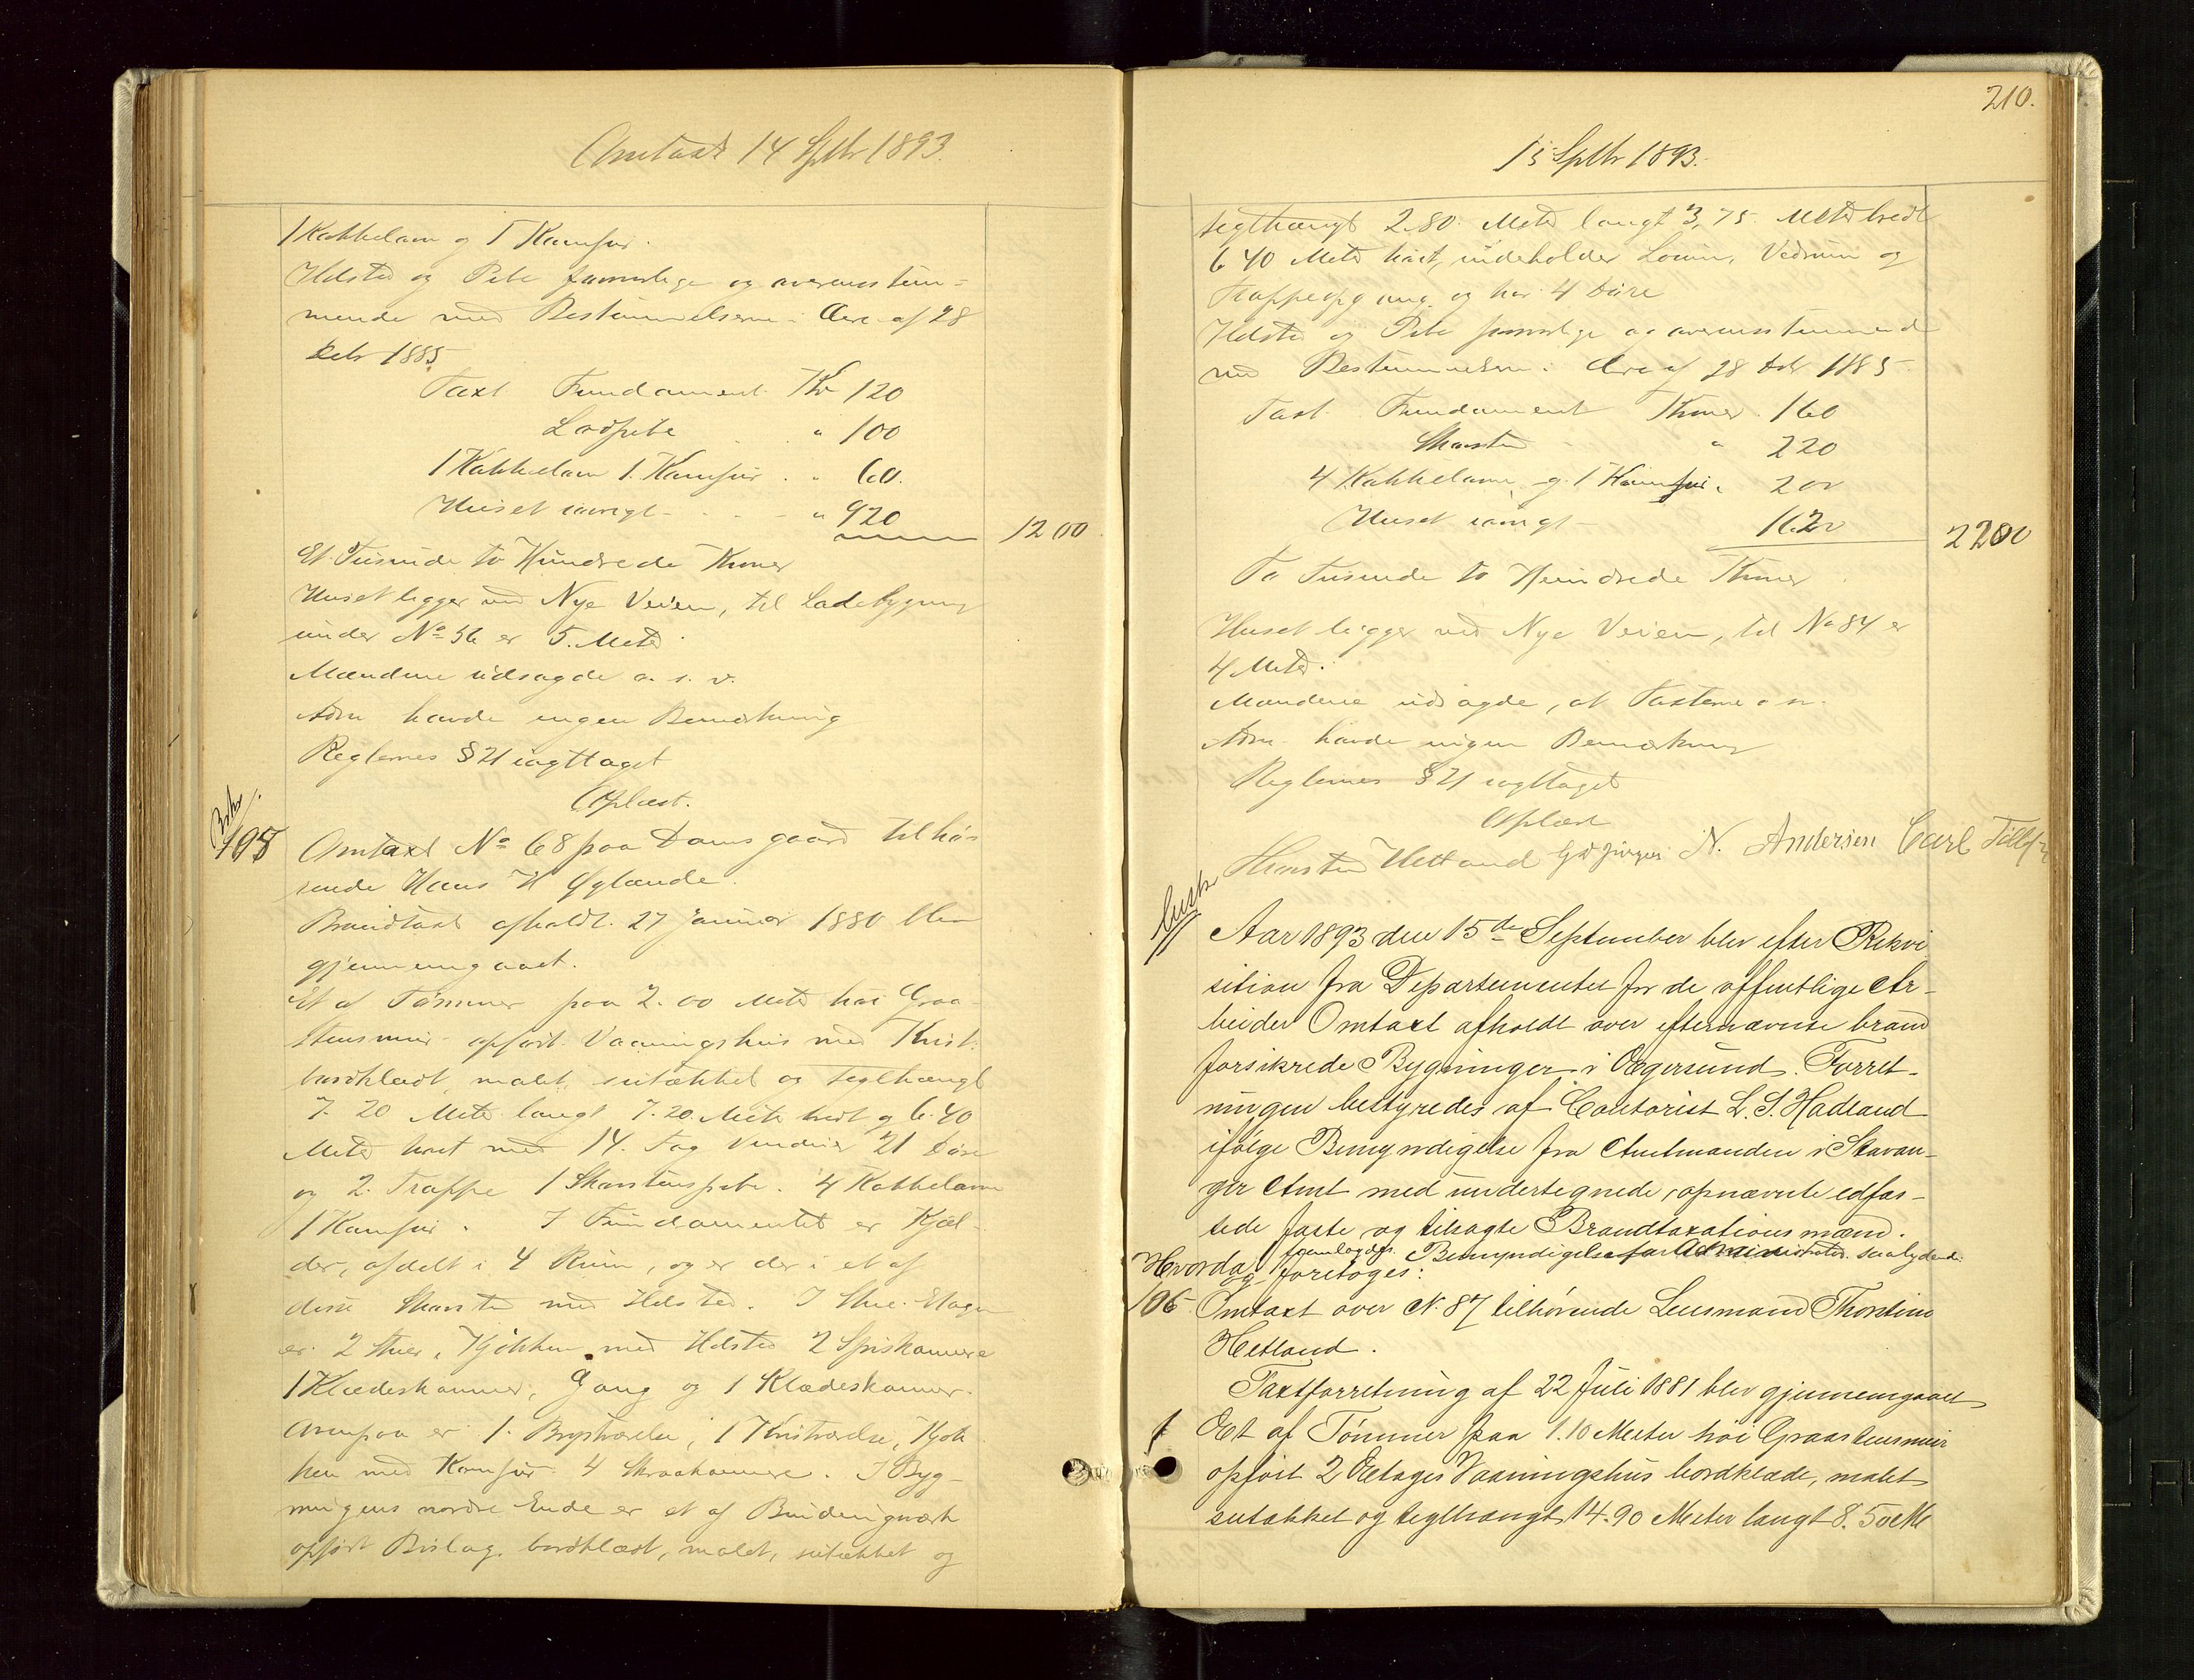 Omtaxt 14 Sptbr 1893.
1 Kakkelovn og 1 Komfur.
Ildsted og Pibe forsvarlige og overensstem-
mende med Bestemmelserne i Circ. af 28
Debr 1885
Taxt Fundament Kr 120
Lodpibe " 100
1 Kakkelovn 1 Komfur " 60.
Huset iøvrigt " 920
1200
Et Tusinde to Hundrede Kroner
Huset ligger ved Nye Veien, til Ladebygning
under No 56 er 5. Meter
Mændene udsagde o. s. v.
Adm havde ingen Bemærkning
Reglernes § 21 iagttaget
Oplæst.
105
Omtaxt No 68 paa Damsgaard tilhø-
rende Hans H Øglænde.
Brandtaxt afholdt 27 Januar 1880 blev
gjennemgaaet.
Et af Tømmer paa 2.00 Meter høi Graa-
stensmur opført Vaaningshus med Kvist
bordklædt, malet, sutækket og teglhængt
7.20 Meter langt 7.20 Meter bredt og 6.40
Meter høit med 14 Fag Vinduer 21 Døre
og 2. Trappe 1 Skorstenspibe. 4 Kakkelovne
1 Komfur. I Fundamentet er Kjæl-
der, afdelt i 4 Rum, og er der i et af
disse Skorsten med Ildsted. I 1ste Etage
er 2 Stuer, Kjøkken med Ildsted 2 Spiskamere
1 Klædeskammer, Gang og 1 Klædeskammer.
Ovenpaa er 1. Brystværelse, 1 Kvistværelse, Kjøk
ken med Komfur 4 Skraakamere. I Byg-
ningens nordre Ende er et af Bindingsværk
opført Bislag, bordklædt, malet, sutækket og
210.
15 Sptbr 1893.
teglhængt 2.80 Meter langt 3,75 Meter bredt
6.40 Meter høit, indeholder Vedrum og
Trappeopgang og har 4 Døre
Ildsted og Pibe forsvarlige og overensstemmende
med Bestemmelserne i Circ af 28 Debr 1885
Taxt Fundament Kroner 160
Skorsten " 220
4 Kakkelovne og 1 Komfur " 200
Huset iøvrigt 1620
2200
To Tusinde to Hundrede Kroner
Huset ligger ved Nye Veien, til No 84 er
4 Meter.
Mændene udsagde, at Taxterne o s v.
Adm. havde ingen Bemærkning
Reglernes § 21 iagttaget
Oplæst
Thorsten Hetland N. Andersen Carl
Aar 1893 den 15de September blev efter Rekvi
sition fra Departementet for de offentlige Ar-
beider Omtaxt afholdt over efternævnte brand
forsikrede Bygninger i Egersund. Forret-
ningen bestyredes af Contorist L. S. Hadland
ifølge Bemyndigelse fra Amtmanden i Stavan-
ger Amt med undertegnede, opnævnte edfæs-
tede faste og tilsagte Brandtaxationsmænd.
fremlagdes Bemyndigelse for Administrator saalydende
Hvorda og foretoges:
106 Omtaxt over N. 87 tilhørende Lensmand Thorstein
Hetland.
Taxtforretning af 22 Juli 1881 blev gjennemgaaet
Et af Tømmer paa 1.10 Meter høi Graastensmur
opført 2 Etages Vaaningshus bordklædt, malet
sutækket og teglhængt 14.90 Meter langt 8.50 M